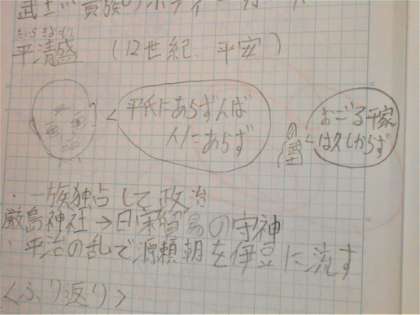 武士…貴族のボディーガード
たいらのきよもり
平清盛 (12世紀 平安)
平氏にあらずんば
人にあらず
おごる平家
は久しからず
・一族独占して政治
厳島神社→日宋貿易の守神
・平治の乱で源頼朝を伊豆に流す
<ふり返り>